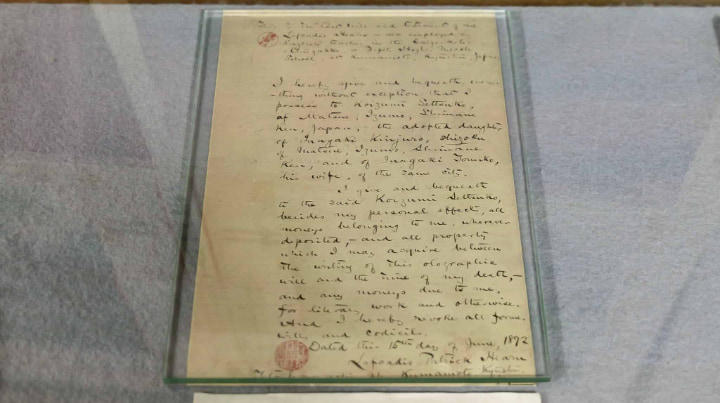 This is the last will and testament of me
Lafcadio Hearn — now employed as
English teacher in the
Chūgakkō = Higher Middle
School, at Kumamoto, Kyūshū, Japan.
I hereby give and bequeath every-
-thing without exception that I
possess to Koizumi Settsuko,
of Matsue, Izumo, Shimane
Ken, Japan, — the adopted daughter
of Inagaki Kinjuro, shizoku
of Matsue, Izumo, Shimane
Ken, and of Inagaki Tomiko,
his wife, of the same city.
I give and bequeath
to the said Koizumi Settsuko,
besides my personal effects, all
moneys belonging to me, wherever
deposited, — and all property
which I may acquire between
the writing of this olographic
will and the time of my death, —
and any moneys due to me,
for literary work and otherwise.
And I hereby revoke all former
wills and codicils.
Dated this 15th day of June, 1892
Lafcadio Patrick Hearn
Kumamoto, Kyūshū